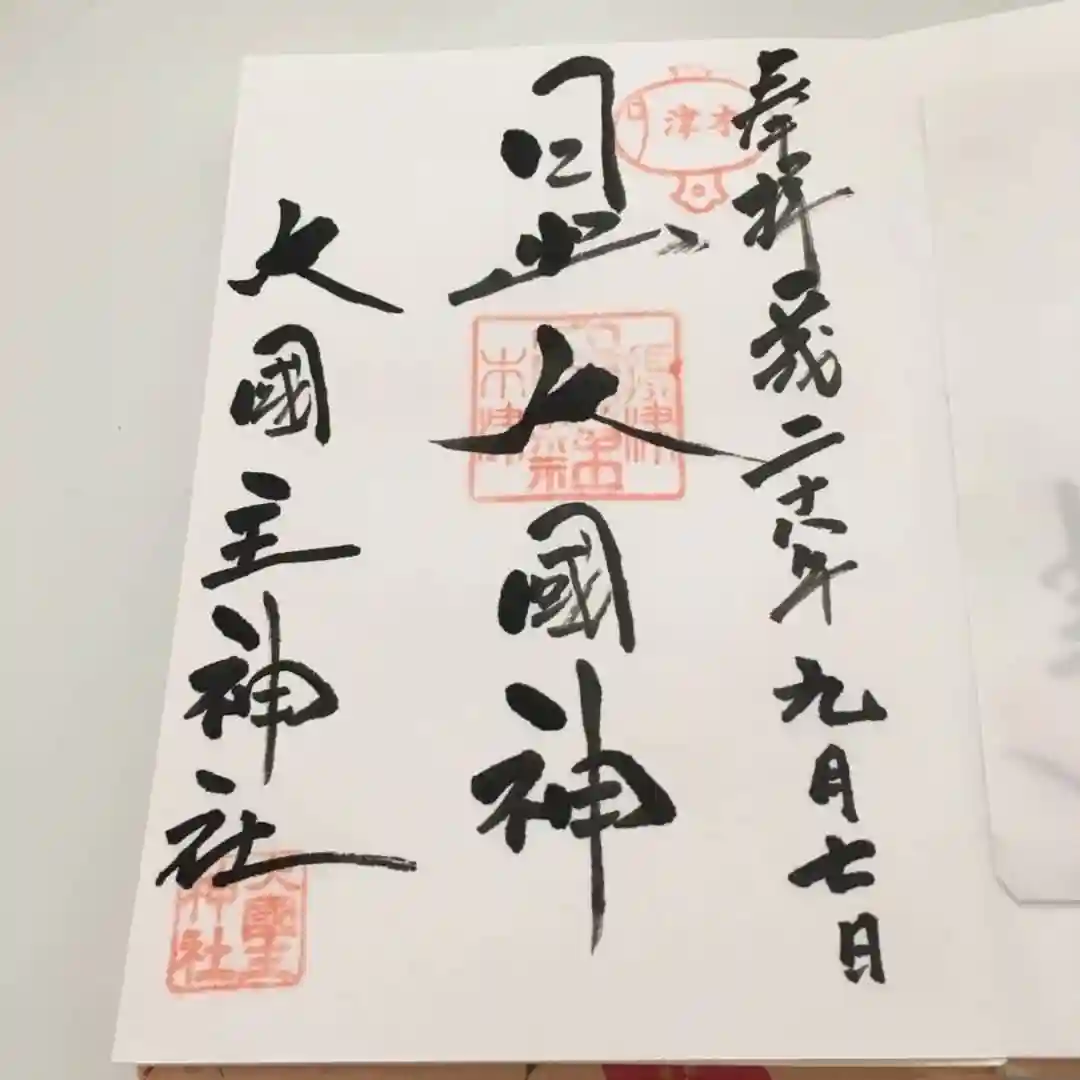 奉拝 平成二十八年九月七日
木津
日出大國神
大國主神社
大國主
神社